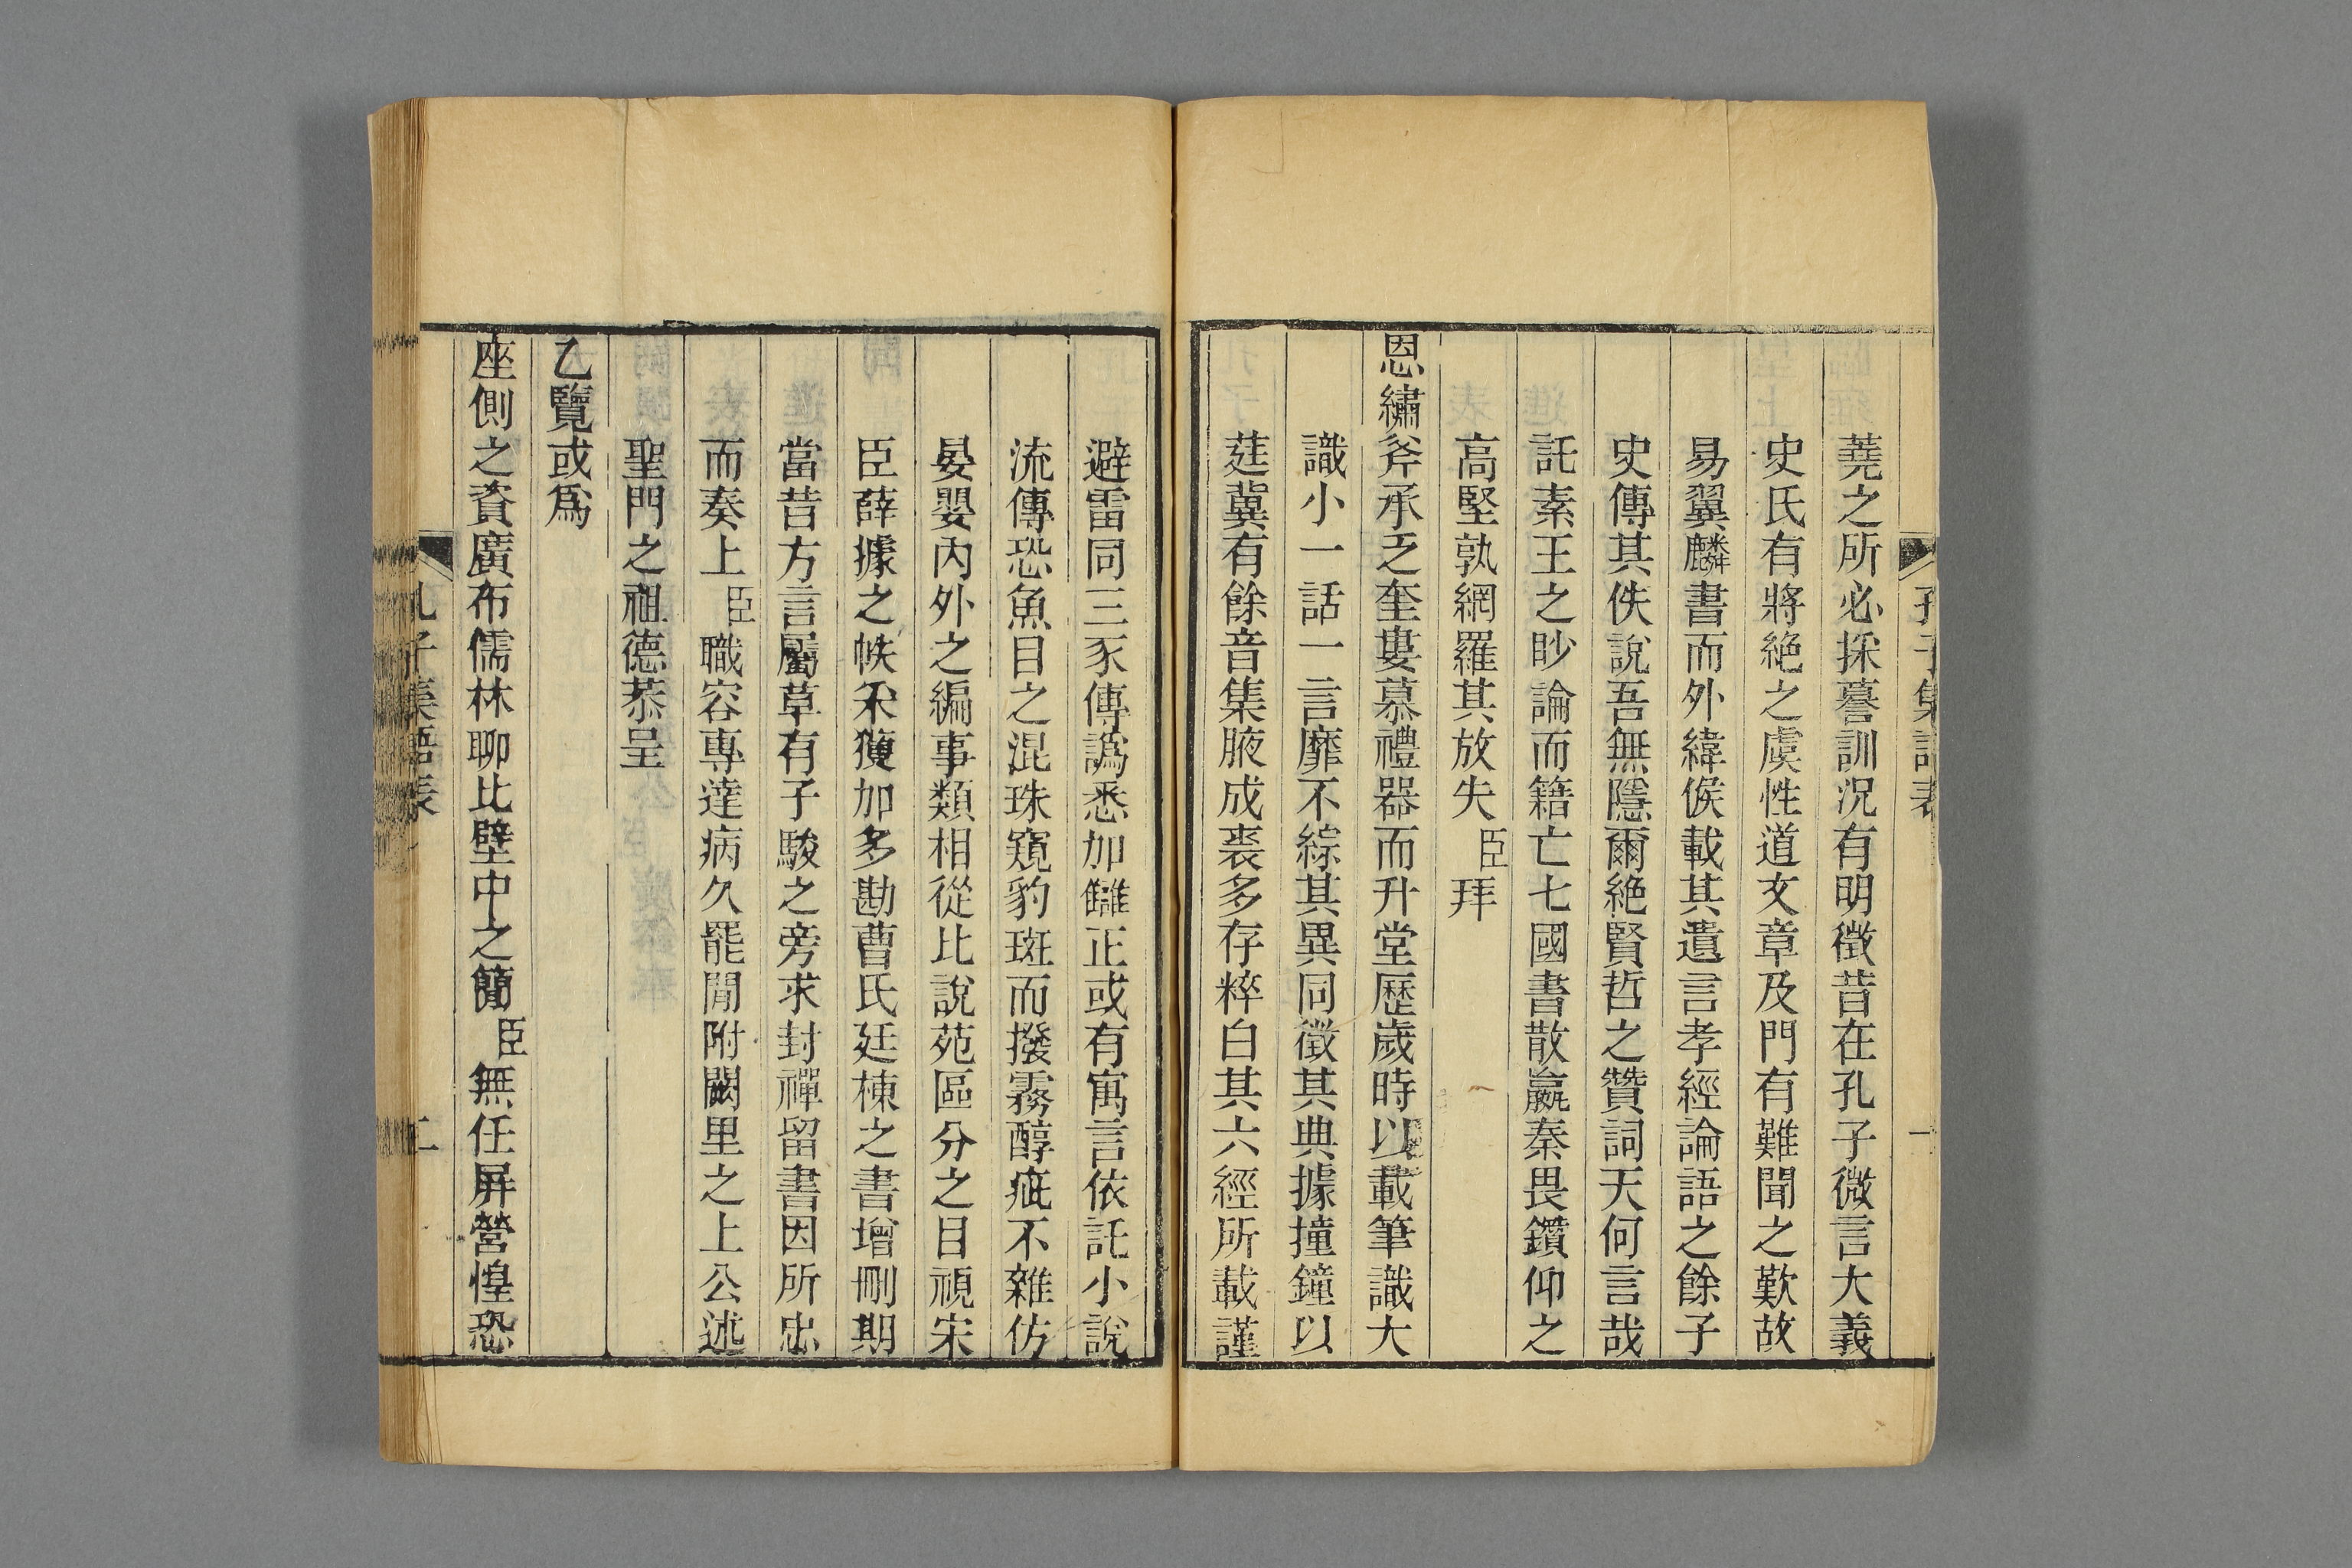 孔子集語表
一
蕘之所必採謩訓况有明徵昔在孔子微言大義
史氏有將絶之虞性道文章及門有難聞之歎故
易翼麟書而外緯候載其遺言孝經論語之餘子
史傳其佚說吾無隱爾絶賢哲之贊詞天何言哉
託素王之眇論而籍亡七國書散嬴秦畏鑽仰之
高堅孰網羅其放失臣拜
恩繡斧承乏奎婁慕禮器而升堂歷歲時以載筆識大
識小一話一言靡不綜其異同徵其典據撞鐘以
莛冀有餘音集腋成裘多存粹白其六經所載謹
避雷同三豕傳譌悉加讎正或有寓言依託小說
流傳恐魚目之混珠窺豹斑而撥霧醇疵不雜仿
晏嬰内外之編事類相從比說苑區分之目視宋
臣薛據之帙采獲加多勘曹氏廷棟之書增刪期
當昔方言屬草有子駿之旁求封禪留書因所忠
而奏上臣職容專達病久罷閒附闕里之上公述
聖門之祖德恭呈
乙覽或爲
座側之資廣布儒林聊比壁中之簡臣無任屏營惶恐
孔子集語表
二